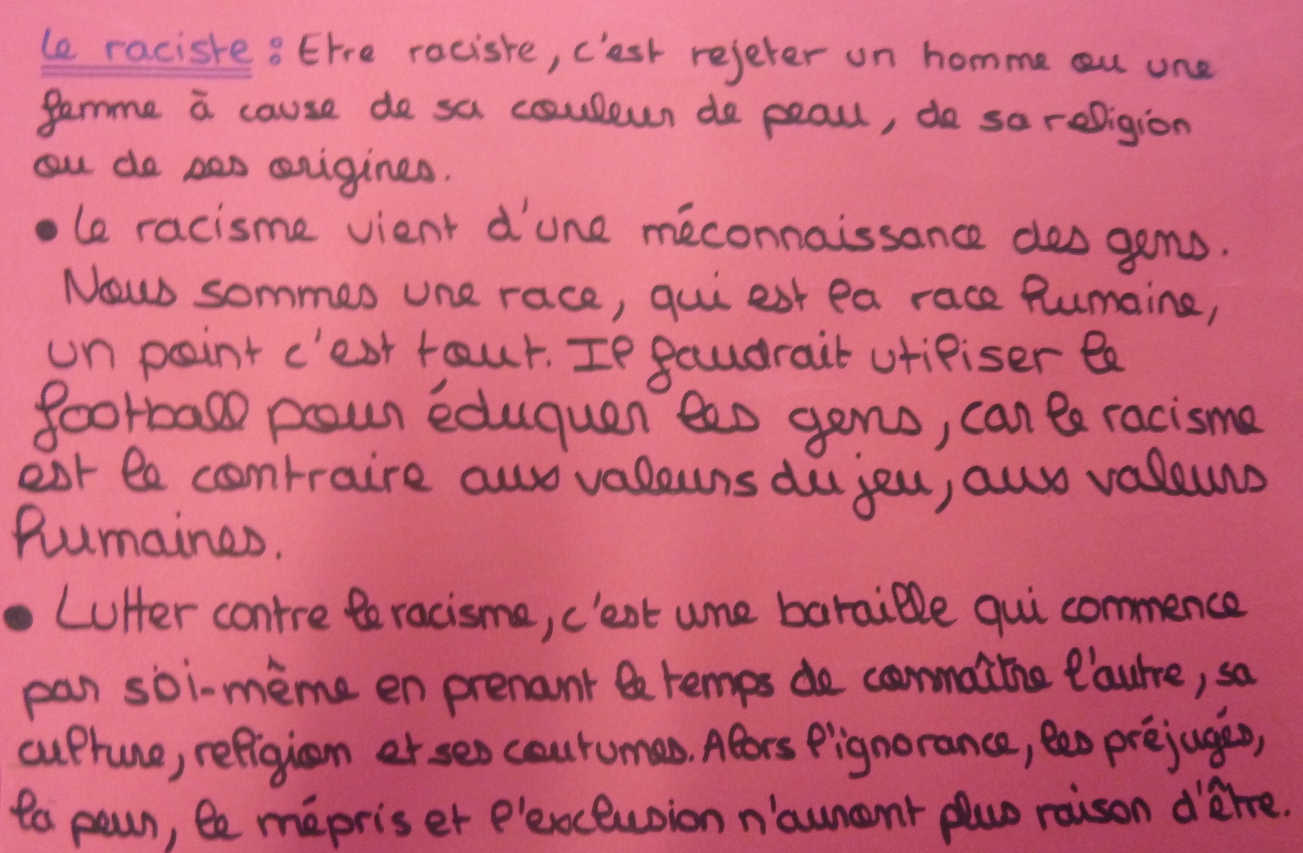 Le raciste : Etre raciste, c'est rejeter un homme ou une
femme à cause de sa couleur de peau, de sa religion
ou de ses origines.
• Le racisme vient d'une méconnaissance des gens.
Nous sommes une race, qui est la race humaine,
un point c'est tout. Il faudrait utiliser le
football pour éduquer les gens, car le racisme
est le contraire aux valeurs du jeu, aux valeurs
humaines.
• Lutter contre le racisme, c'est une bataille qui commence
par soi-même en prenant le temps de connaître l'autre, sa
culture, religion et ses coutumes. Alors l'ignorance, les préjugés,
la peur, le mépris et l'exclusion n'auront plus raison d'être.